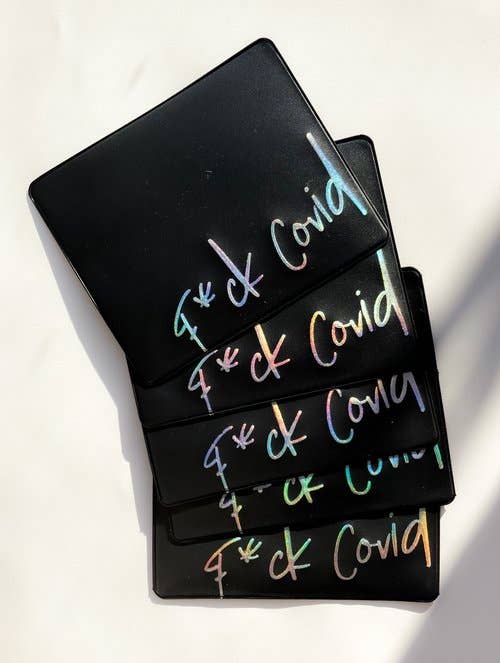 F*ck Covid
F*ck Covid
F*ck Covid
F*ck Covid
F*ck Covid